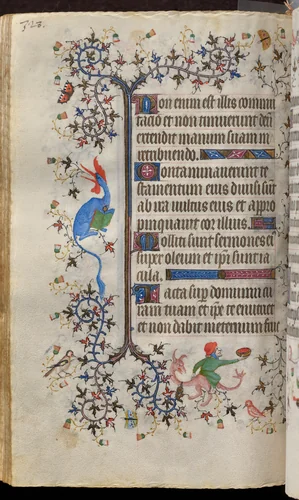 Non enim est illis commu
tacio et non timuerunt deū
extendit manum suam in
retribuendo.
Contaminauerunt te
stamentum eius diuisi sūt
ab ira uultus eius et appro
pinquauit cor illius.
Molliti sunt sermones eī
super oleum et ip̄i sunt ia
cula.
Iacta sup̄ dominum cu
ram tuam et ip̄e te enutriet
et non dabit in eternum fluc